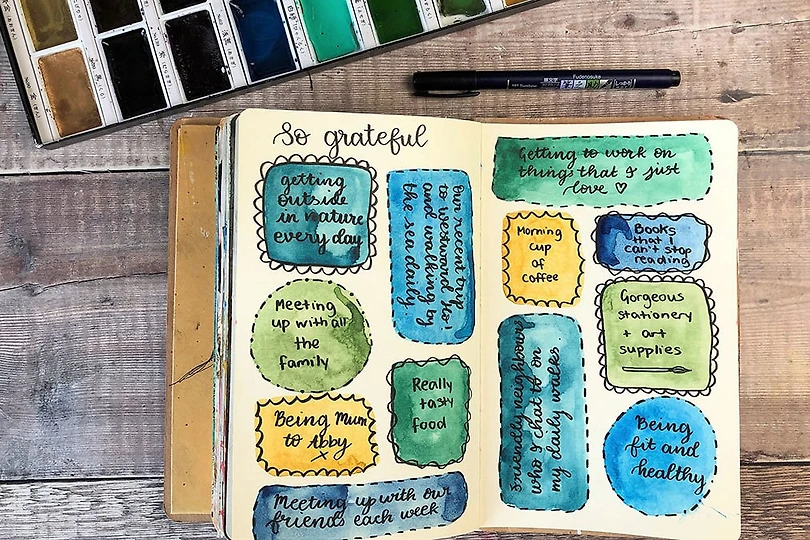 So grateful
getting
outside
in nature
every day
our recent trip
to Westward Ho!
and walking by
the sea daily.
Meeting
up with all
the
family
Really
tasty
food
Being Mum
to Abby
x
Meeting up with our
friends each week
Getting to work on
things that I just
love ♡
Morning
cup
of
coffee
Books
that I
can't stop
reading
Gorgeous
stationery
+ art
supplies
friendly neighbours
who I chat to on
my daily walks.
Being
fit and
healthy
Fudenosuke